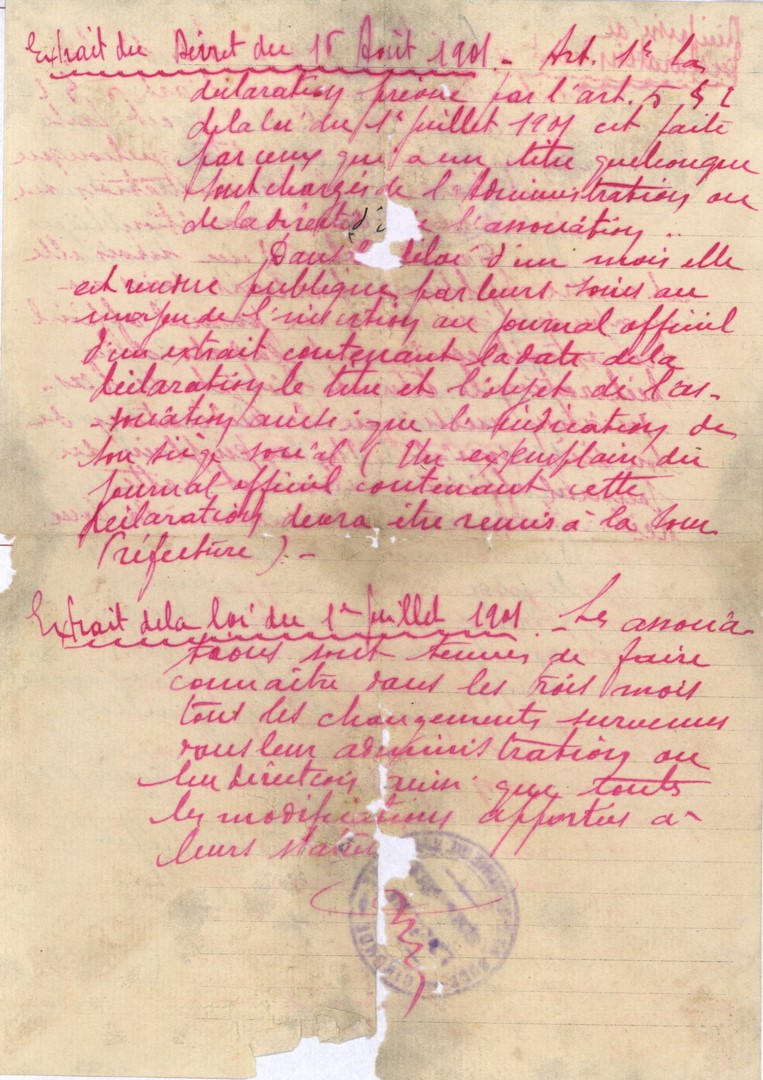 Extrait du Décret du 16 Août 1901. - Art. 1er La
déclaration prévue par l'art. 5 § 2
de la loi du 1er juillet 1901 est faite
par ceux qui à un titre quelconque
sont chargés de l'Administration ou
de la direct de l'association.
Dans le délai d'un mois elle
est rendue publique par leurs soins au
moyen de l'insertion au journal officiel
d'un extrait contenant la date de la
déclaration le titre et l'objet de l'as-
sociation ainsi que l'indication de
son siège social (Un exemplaire du
journal officiel contenant cette
déclaration devra être remis à la Sous
Préfecture). -
Extrait de la loi du 1er juillet 1901. - Les associa
tions sont tenues de faire
connaître dans les trois mois
tous les changements survenus
dans leur administration ou
leur direction ainsi que toutes
les modifications apportées à
leurs statuts
GIRONDE